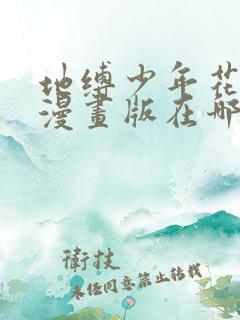 地缚少年花
漫畫版在哪
衛技
未经同意禁止转载